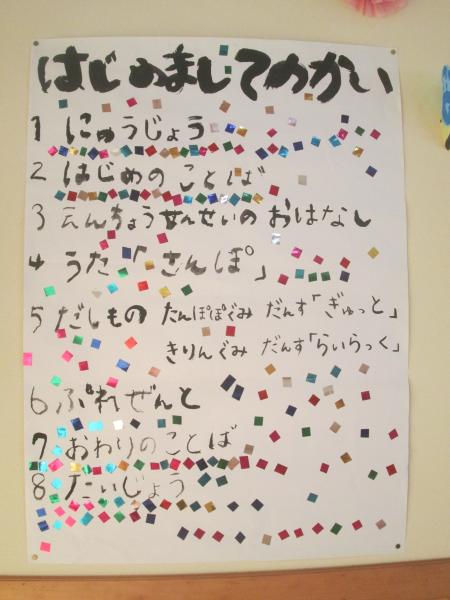 はじめましてのかい
1 にゅうじょう
2 はじめの ことば
3 えんちょうせんせいの おはなし
4 うた「さんぽ」
5 だしもの たんぽぽぐみ だんす「ぎゅっと」
きりんぐみ だんす「らいらっく」
6 ぷれぜんと
7 おわりのことば
8 たいじょう